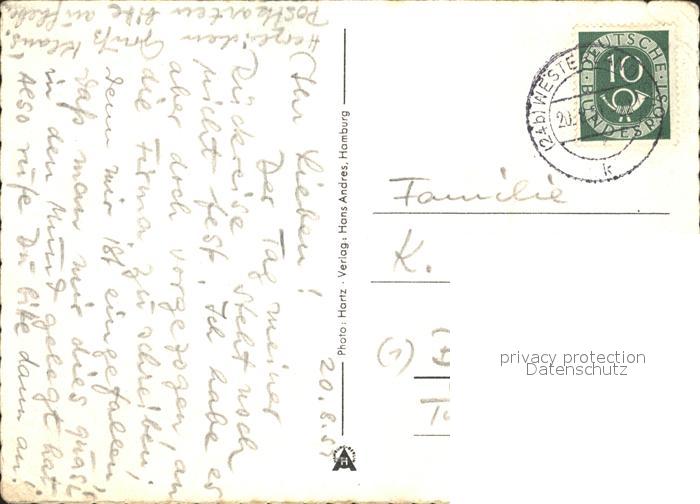 20.8.5
Ihr Lieben!
Der Tag meiner
Rückreise steht noch
nicht fest. Ich habe es
aber doch vorgezogen, an
die Firma zu schreiben,
denn mir ist eingefallen,
daß man mir dies quasi
in den Mund gelegt hat.
Also rufe Du bitte dann an!
Gruß Klaus.
Postkarten bitte
Photo: Hartz · Verlag: Hans Andres, Hamburg
DEUTSCHE
BUNDESPOST
10
(24b) WESTE
20.
k
Familie
K.
(1)
privacy protection
Datenschutz